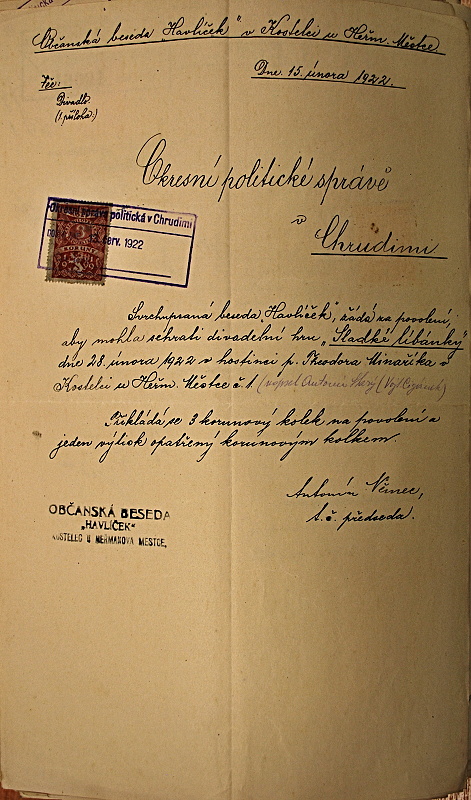 Občanská beseda „Havlíček" v Kostelci u Heřm. Městce
Dne 15. února 1922.
Věc:
Divadlo.
(1 příloha.)
Okresní politické správě
v
Chrudimi.
Okresní správa politická v Chrudimi
3
KORUNY
červ. 1922
Svrchupsaná beseda „Havlíček", žádá za povolení,
aby mohla sehráti divadelní hru „Sladké líbánky"
dne 28. února 1922 v hostinci p. Theodora Minaříka v
Kostelci u Heřm. Městce č. 1. (napsal Antonín
Přikládá se 3 korunový kolek na povolení a
jeden výtisk opatřený korunovým kolkem.
Antonín Němec,
t. č. předseda.
OBČANSKÁ BESEDA
„HAVLÍČEK"
KOSTELEC U HEŘMANOVA MĚSTCE,